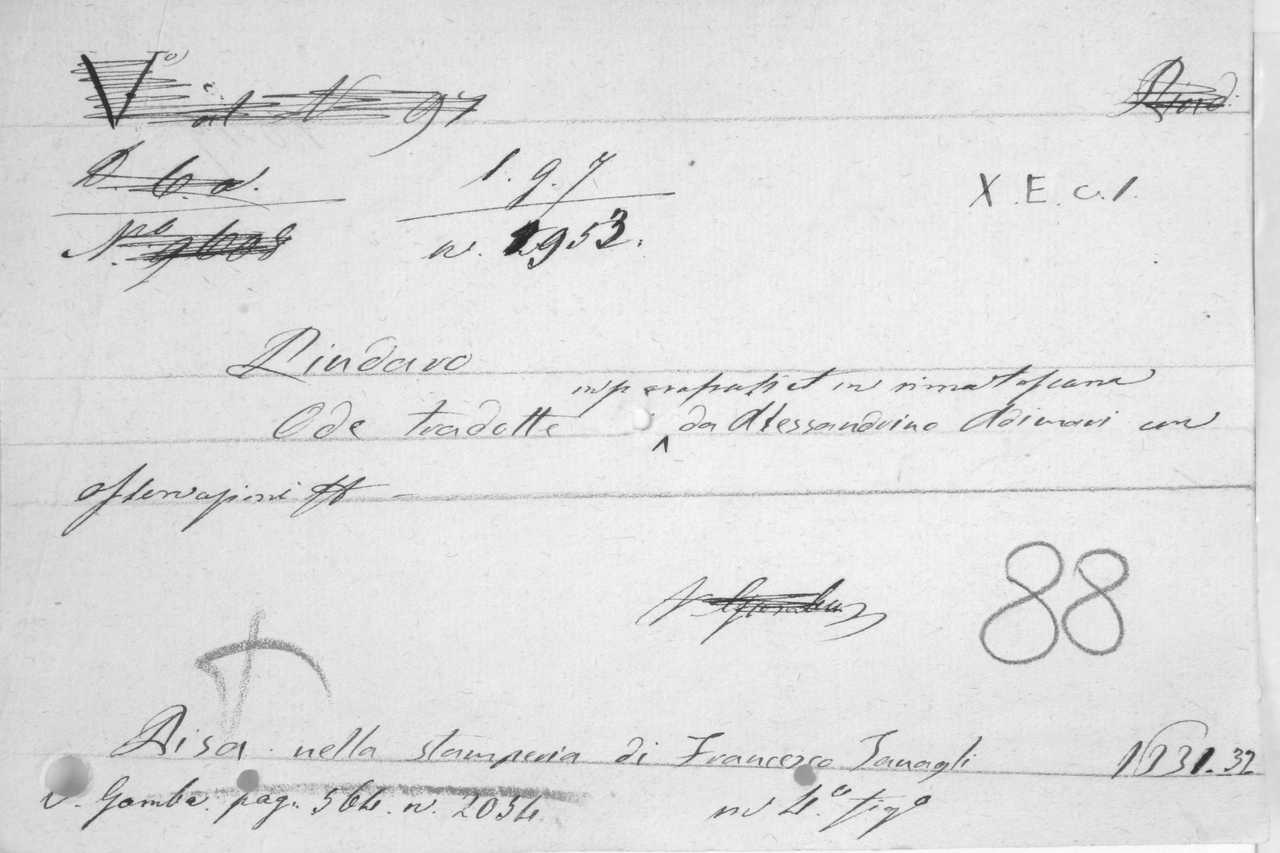 Vo al N 97
D. 6. a. 1. g. 7 X. E. c. 1.
No. 9608 n. 1953.
Pindaro
in parafrasi et in rima toscana
Ode tradotte ^ da Alessandrino Adimari con
osservazioni
88
Pisa. nella stamperia di Francesco Tanagli 1631.32
v. Gamba. pag. 564. n. 2034. in 4.o figo